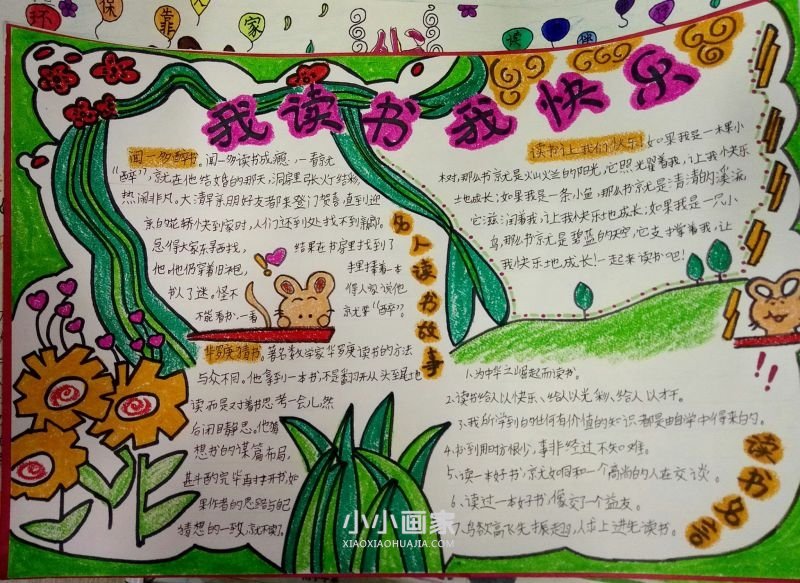 保
靠
非
家
环
读
我读书我快乐
闻一多醉书。闻一多读书成瘾,一看就
“醉”,就在他结婚的那天,洞房里张灯结彩,
热闹非凡。大清早亲朋好友都来登门贺喜,直到迎
亲的花轿快到家时,人们还到处找不到新郎,
急得大家东寻西找,结果在书房里找到了
他,他仍穿着旧袍,手里捧着一本
书入了迷,怪不得人家说他
不能看书,一看就要“醉”。
名人读书故事
华罗庚猜书。著名数学家华罗庚读书的方法
与众不同。他拿到一本书,不是翻开从头至尾地
读,而是对着书思考一会儿,然
后闭目静思。他猜
想书的谋篇布局,
甚斗酌完毕再打开书,如
果作者的思路与自己
猜想的一致,就不读了。
读书让我们快乐!如果我是一棵小
树,那么书就是火山火兰的阳光,它照光翟着我,让我快乐
地成长;如果我是一条小鱼,那么书就是清清的溪流,
它滋润着我,让我快乐地成长;如果我是一只小
鸟,那么书就是碧蓝的天空,它支撑着我,让
我快乐地成长!一起来读书吧!
1.为中华之崛起而读书。
2.读书给人以快乐、给人以光彩、给人以才干。
3.我所学到的任何有价值的知识都是由自学中得来的。
4.书到用时方恨少,事非经过不知难。
5.读一本好书,就如同和一个高尚的人在交谈。
6.读过一本好书,像交了个益友。
7.鸟欲高飞先振翅,人求上进先读书。
读书名言
小小画家
XIAOXIAOHUAJIA.COM